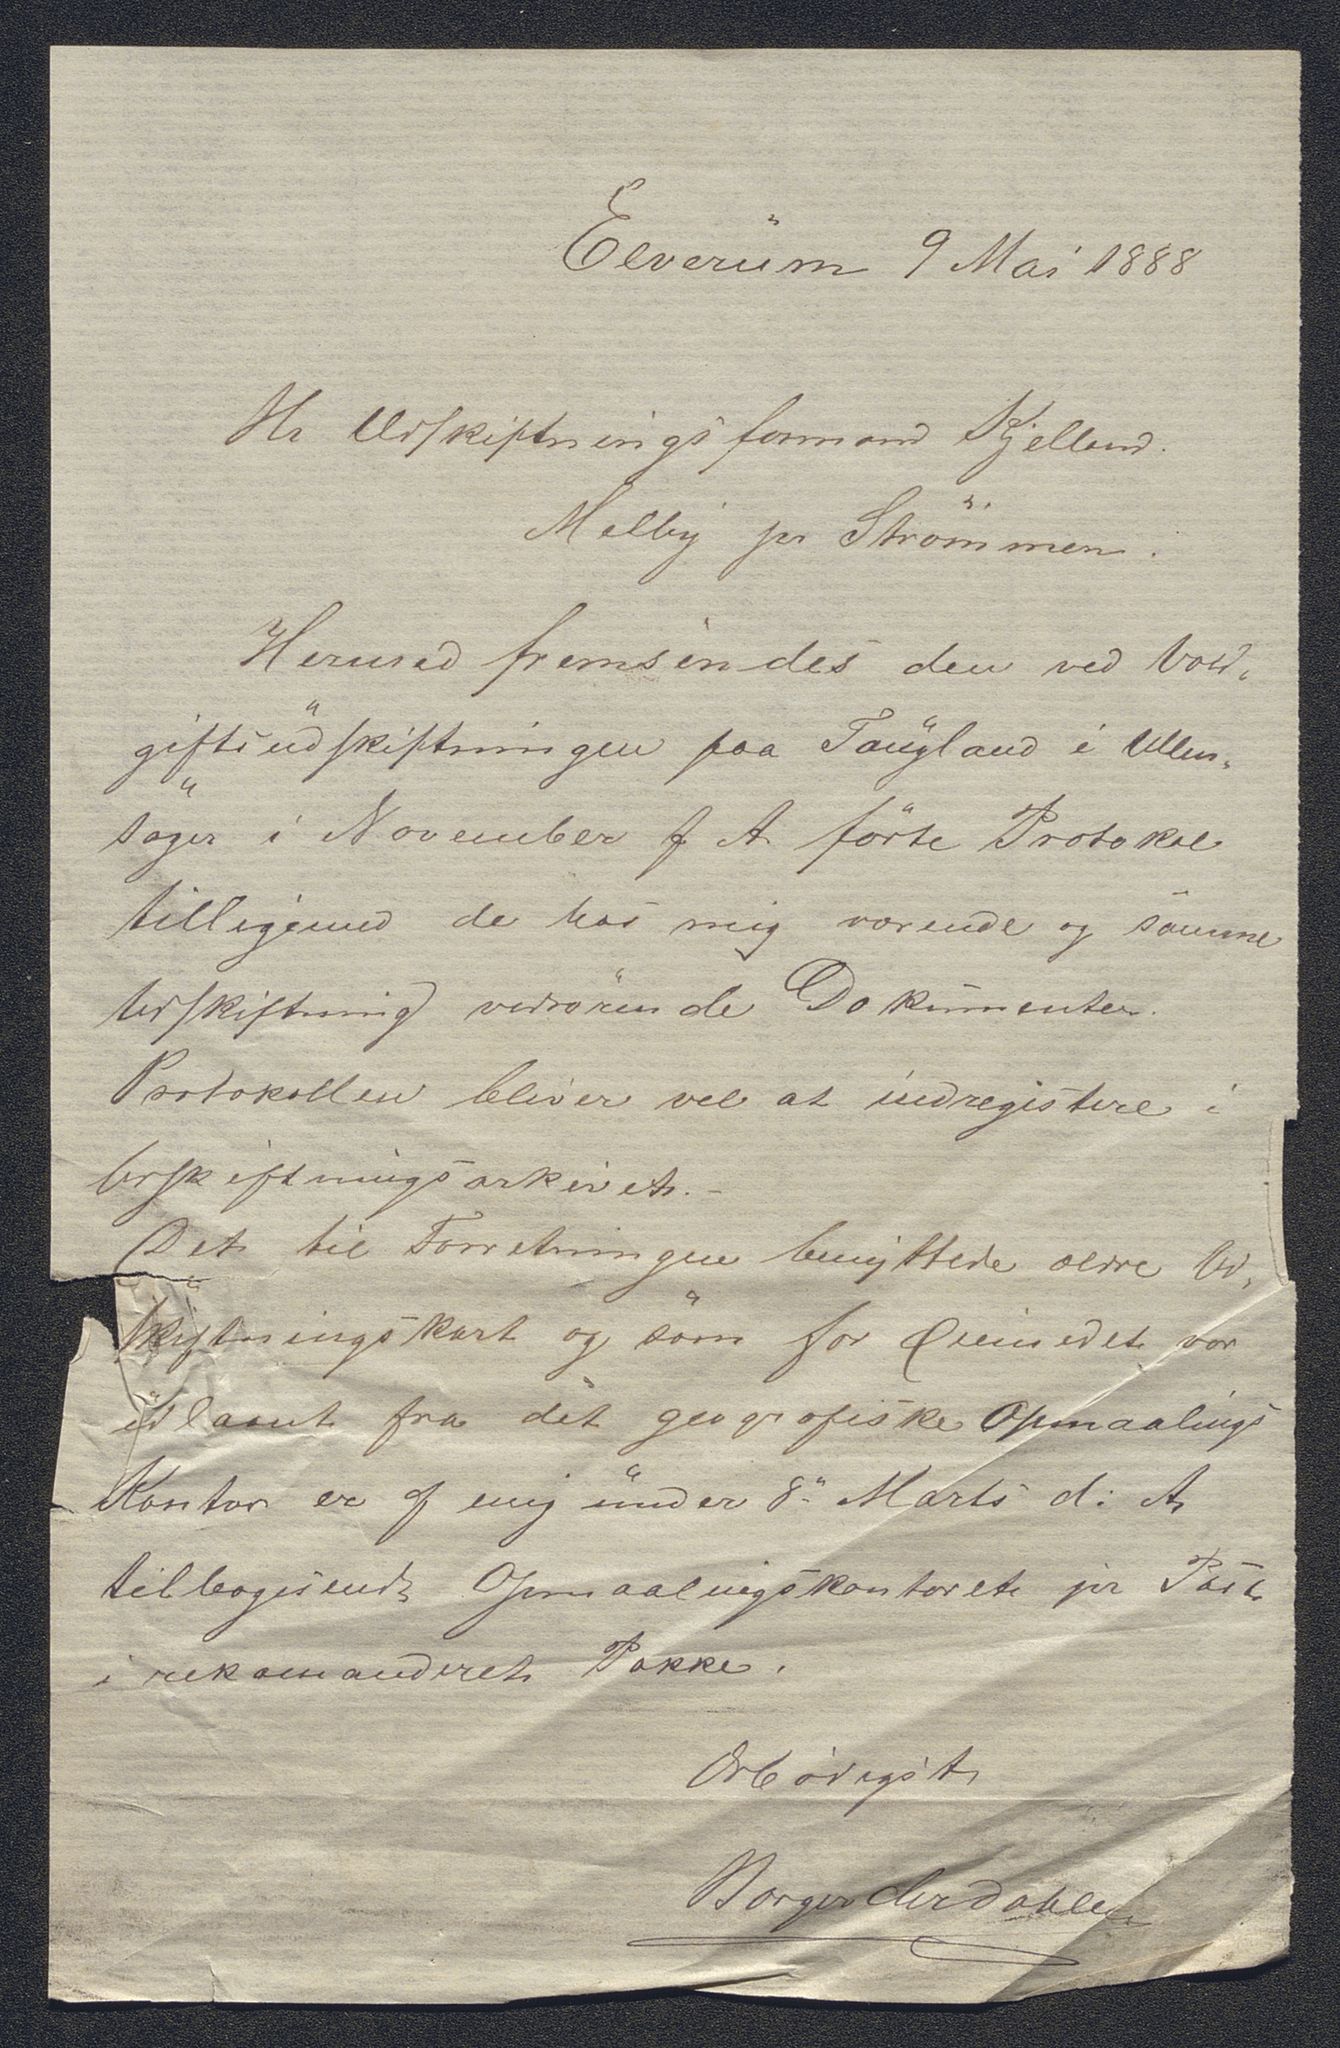 Elverum 9 Mai 1888
Hr Udskiftningsformand Kjelland.
Melby pr Strömmen.
Hermed fremsendes den ved Vold-
giftsudskiftningen paa Taugland i Ullen-
sager i November f A förte Protokol
tilligemed de hos mig værende og samme
Udskiftning vedrörende Dokumenter.
Protokollen bliver vel at indregistere i
Udskiftningsarkivet. -
Det til Forretningen benyttede ældre Ud-
skiftningskart og som for Öiemedet var
udlaant fra det geografiske Opmaalings
Kontor er af mig under 8de Marts d: A
tilbagesendt Opmaalingskontoret pr Post
i rekomanderet Pakke.
Ærbödigst
Borger